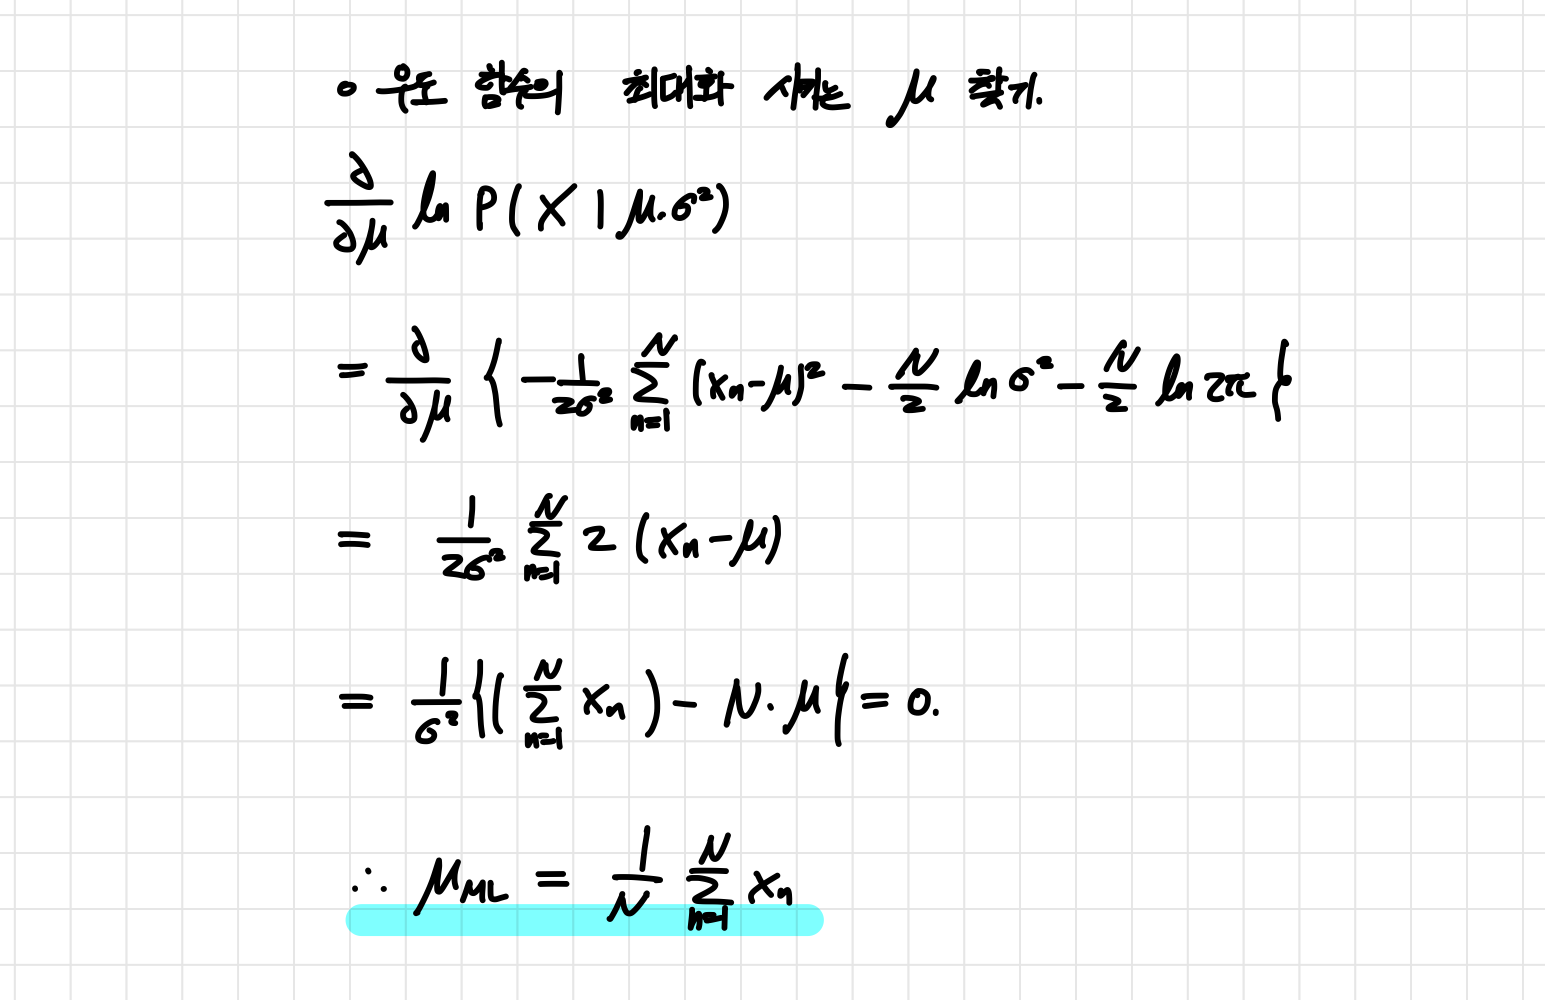 ∘ 우도 함수의 최대화 시키는 μ 찾기.
∂/∂μ ln P(X | μ.σ²)
= ∂/∂μ { -1/2σ² Σ_{n=1}^{N} (x_n-μ)² - N/2 ln σ² - N/2 ln 2π }
= 1/2σ² Σ_{n=1}^{N} 2 (x_n-μ)
= 1/σ² {( Σ_{n=1}^{N} x_n ) - N·μ } = 0.
∴ μ_ML = 1/N Σ_{n=1}^{N} x_n